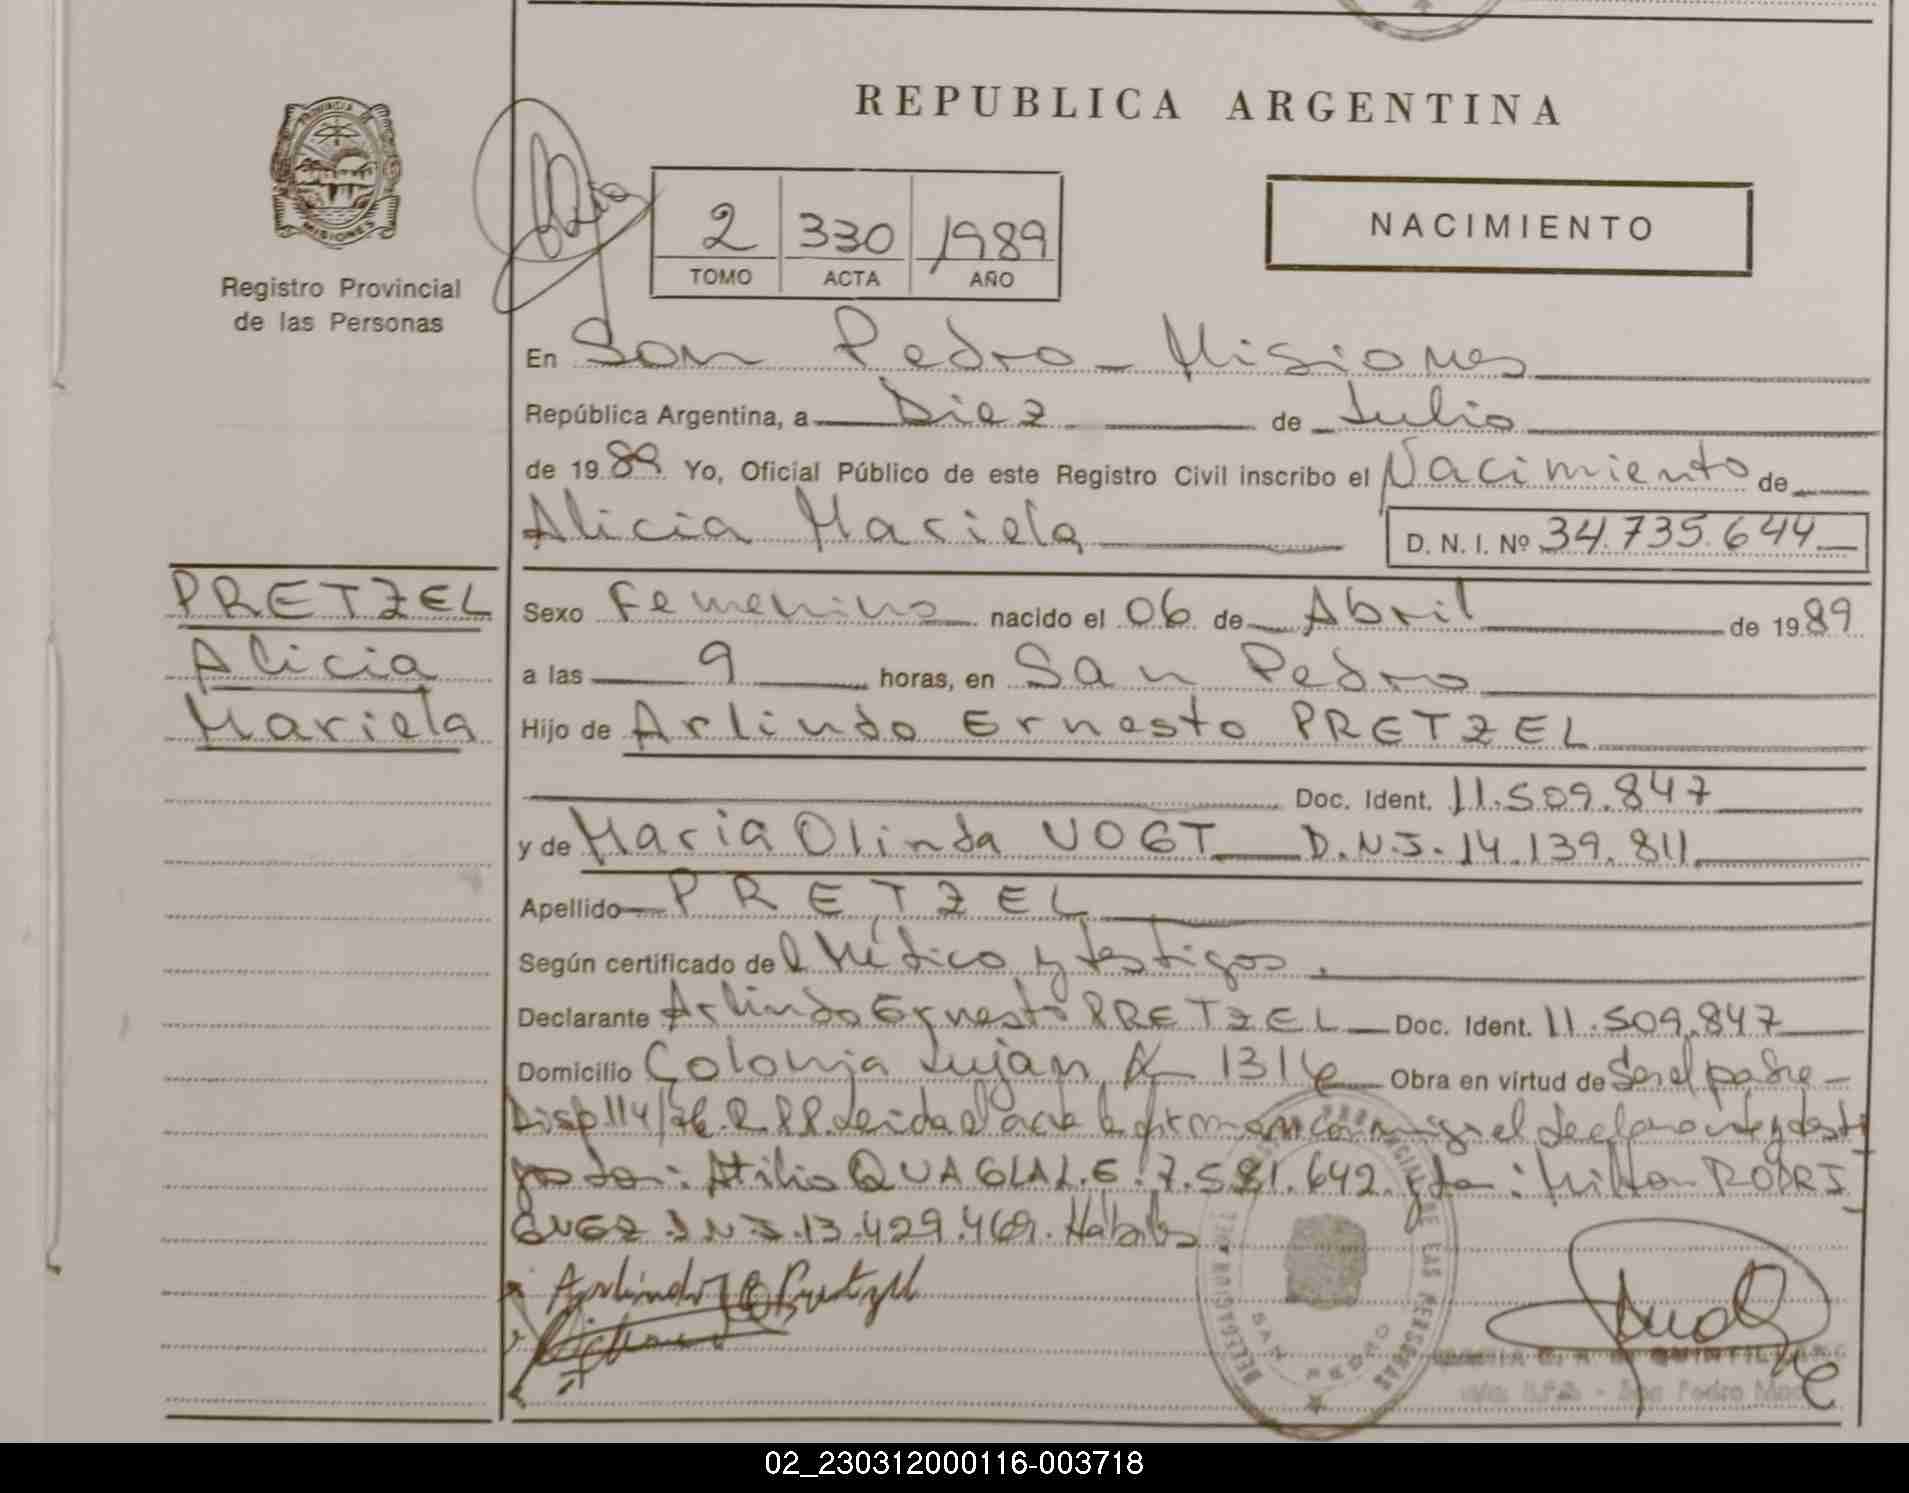 REPUBLICA ARGENTINA
PROVINCIA DE
MISIONES
Registro Provincial
de las Personas
2 330 1989
TOMO ACTA AÑO
NACIMIENTO
En San Pedro - Misiones
República Argentina, a Diez de Julio
de 19 89 Yo, Oficial Público de este Registro Civil inscribo el Nacimiento de
Alicia Mariela D. N. I. Nº 34.735.644
PRETZEL
Alicia
Mariela
Sexo Femenino nacido el 06 de Abril de 19 89
a las 9 horas, en San Pedro
Hijo de Arlindo Ernesto PRETZEL
Doc. Ident. 11.509.847
y de Maria Olinda VOGT D.N.I. 14.139.811
Apellido PRETZEL
Según certificado de l Médico y testigos.
Declarante Arlindo Ernesto PRETZEL Doc. Ident. 11.509.847
Domicilio Colonia Lujan Obra en virtud de Ser el padre
Disp. 114/ R.P.P. Leida el acta la firman conmigo el declarante y testi
gos Don: Atilio QUAGLIA L.E. 7.581.642 y Don: Milton RODRI
GUEZ D.N.I. 13.429.469. Hábiles
Arlindo E Pretzel
REGISTRO PROVINCIAL DE LAS PERSONAS
SAN PEDRO
San Pedro
02_230312000116-003718